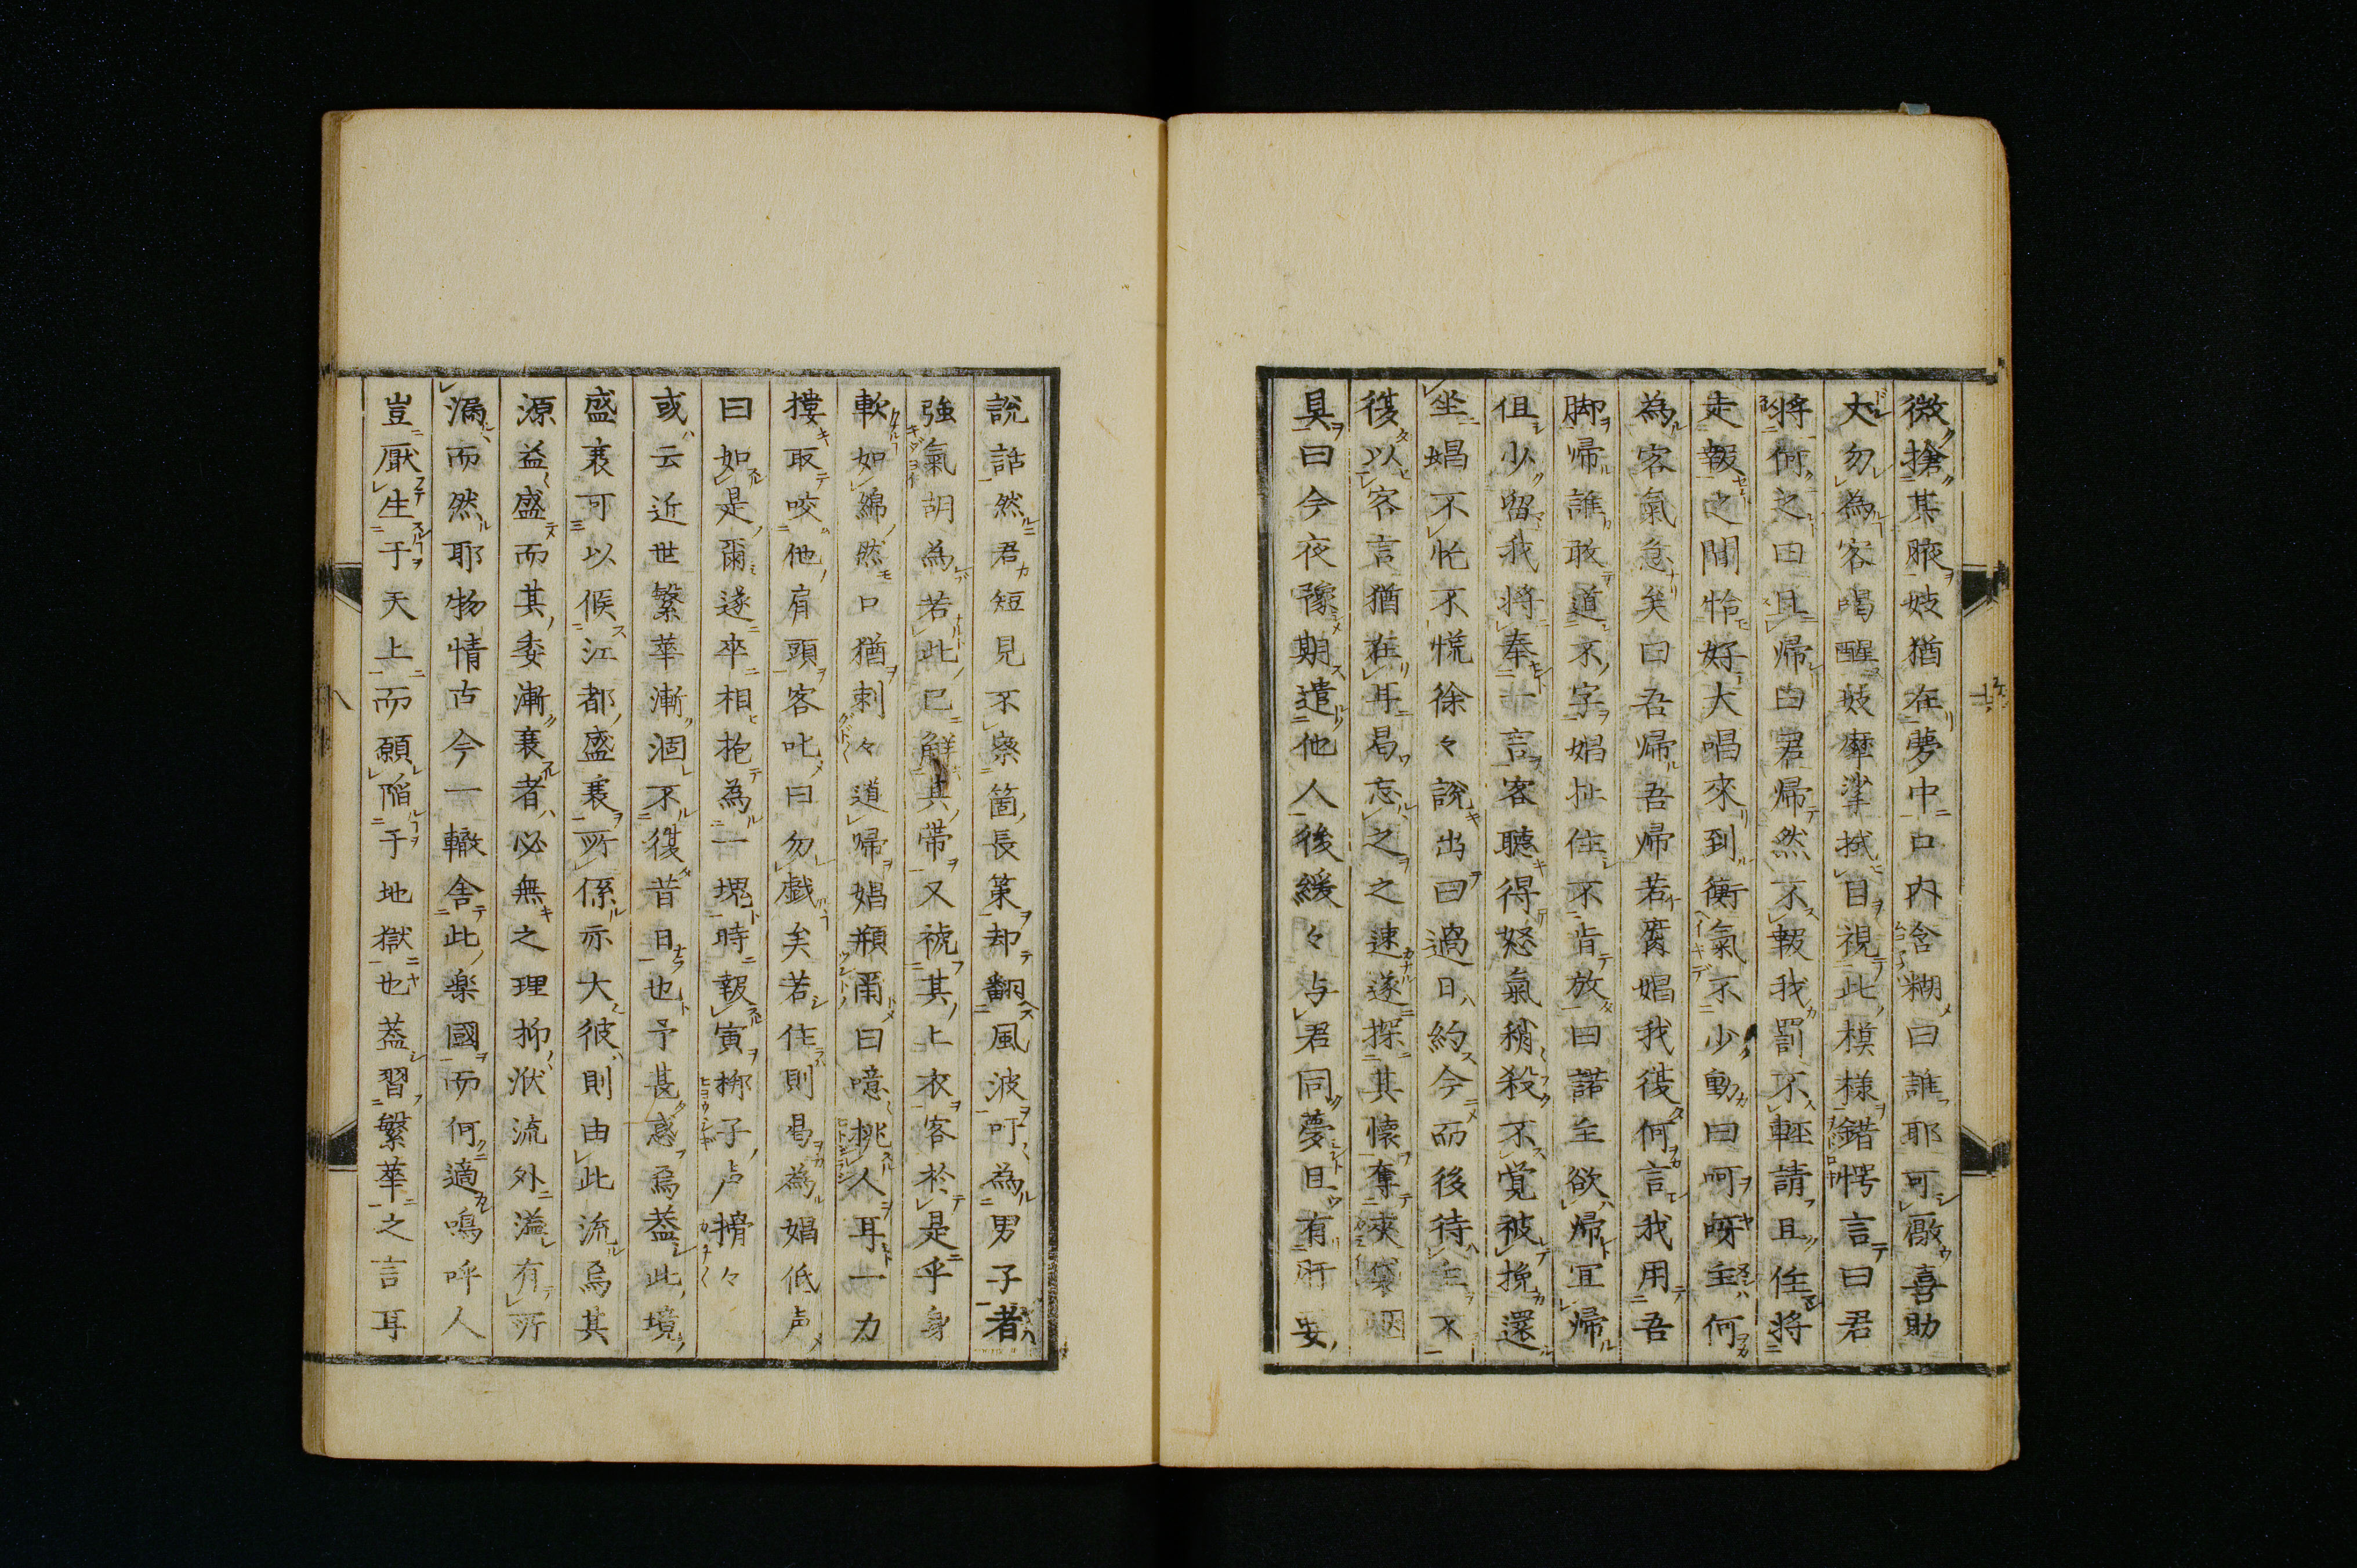 微搶其腋妓猶在夢中口内含糊曰誰耶可厭喜助
大勿為客喝醒妓摩挲拭目視此模様錯愕言曰君
将何之曰且帰曰君帰然不報我罰不輕請且住将
走報之間恰好大唱來到衡氣不少動曰呵呀主何
為客氣急矣曰吾帰吾帰若奮娼我復何言我用吾
脚帰誰敢道不字娼扯住不肯放曰諾至欲帰冝帰
但少留我将奉一言客聴得怒氣稍殺不覚被挽還
坐娼不忙不慌徐々說出曰過日約今而後待主不
復以客言猶在耳曷忘之之速遂探其懐奪夾袋烟
具曰今夜豫期遣他人後緩々与君同夢且有肝要
說話然君短見不察箇長策却翻風波吁為男子者
強氣胡為若此已觧其帯又褫其上衣客於是乎身
軟如綿然口猶刺々道帰娼頩爾曰噫挑人耳一力
摟取咬他肩頭客叱曰勿戯矣若住則曷為娼低声
曰如是爾遂卒相抱為一堁時報寅柝子声搰々
或云近世繁華漸涸不復昔日也予甚惑焉蓋此境
盛衰可以候江都盛衰所係亦大彼則由此流焉其
源益盛而其委漸衰者必無之理抑洑流外溢有所
漏而然耶物情古今一轍舎此楽國而何適嗚呼人
豈厭生于天上而願陥于地獄也蓋習繁華之言耳